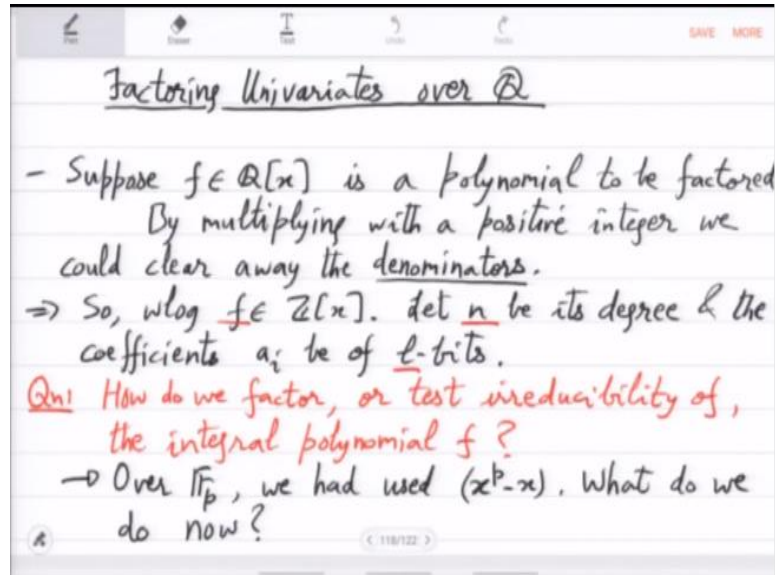 Pen Eraser Text Undo Redo SAVE MORE
Factoring Univariates over ℚ
- Suppose f ∈ ℚ[x] is a polynomial to be factored
By multiplying with a positive integer we
could clear away the denominators.
⇒ So, wlog f ∈ ℤ[x]. Let n be its degree & the
coefficients aᵢ be of ℓ-bits.
Qn: How do we factor, or test irreducibility of,
the integral polynomial f ?
→ Over 𝔽ₚ, we had used (xᵖ-x). What do we
do now?
< 118/122 >